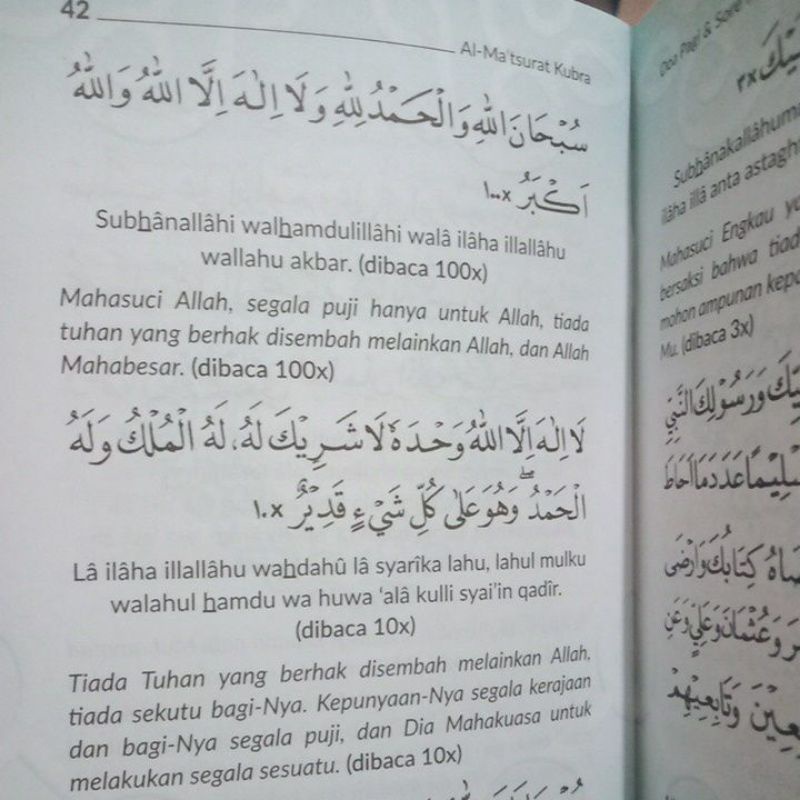 42
Al-Ma'tsurat Kubra
سُبْحَانَ اللّٰهِ وَالْحَمْدُ لِلّٰهِ وَلَا اِلٰهَ اِلَّا اللّٰهُ وَاللّٰهُ
اَكْبَرُ ١٠٠x
Subhânallâhi walhamdulillâhi walâ ilâha illallâhu
wallahu akbar. (dibaca 100x)
Mahasuci Allah, segala puji hanya untuk Allah, tiada
tuhan yang berhak disembah melainkan Allah, dan Allah
Mahabesar. (dibaca 100x)
لَا اِلٰهَ اِلَّا اللّٰهُ وَحْدَهٗ لَا شَرِيْكَ لَهُ، لَهُ الْمُلْكُ وَلَهُ
الْحَمْدُ وَهُوَ عَلٰى كُلِّ شَيْءٍ قَدِيْرٌ ١٠x
Lâ ilâha illallâhu wahdahû lâ syarîka lahu, lahul mulku
walahul hamdu wa huwa 'alâ kulli syai'in qadîr.
(dibaca 10x)
Tiada Tuhan yang berhak disembah melainkan Allah,
tiada sekutu bagi-Nya. Kepunyaan-Nya segala kerajaan
dan bagi-Nya segala puji, dan Dia Mahakuasa untuk
melakukan segala sesuatu. (dibaca 10x)
Doa Pagi & Sore
٣x
Subhânakallâhumma
ilâha illâ anta
Mahasuci Engkau
bersaksi bahwa
mohon ampunan
Mu. (dibaca 3x)
وَرَسُوْلِكَ النَّبِيِّ
عَدَدَ مَا اَحَاطَ
كِتَابُكَ وَارْضَ
وَعُثْمَانَ وَعَلِيٍّ وَعَنِ
وَتَابِعِيْهِمْ